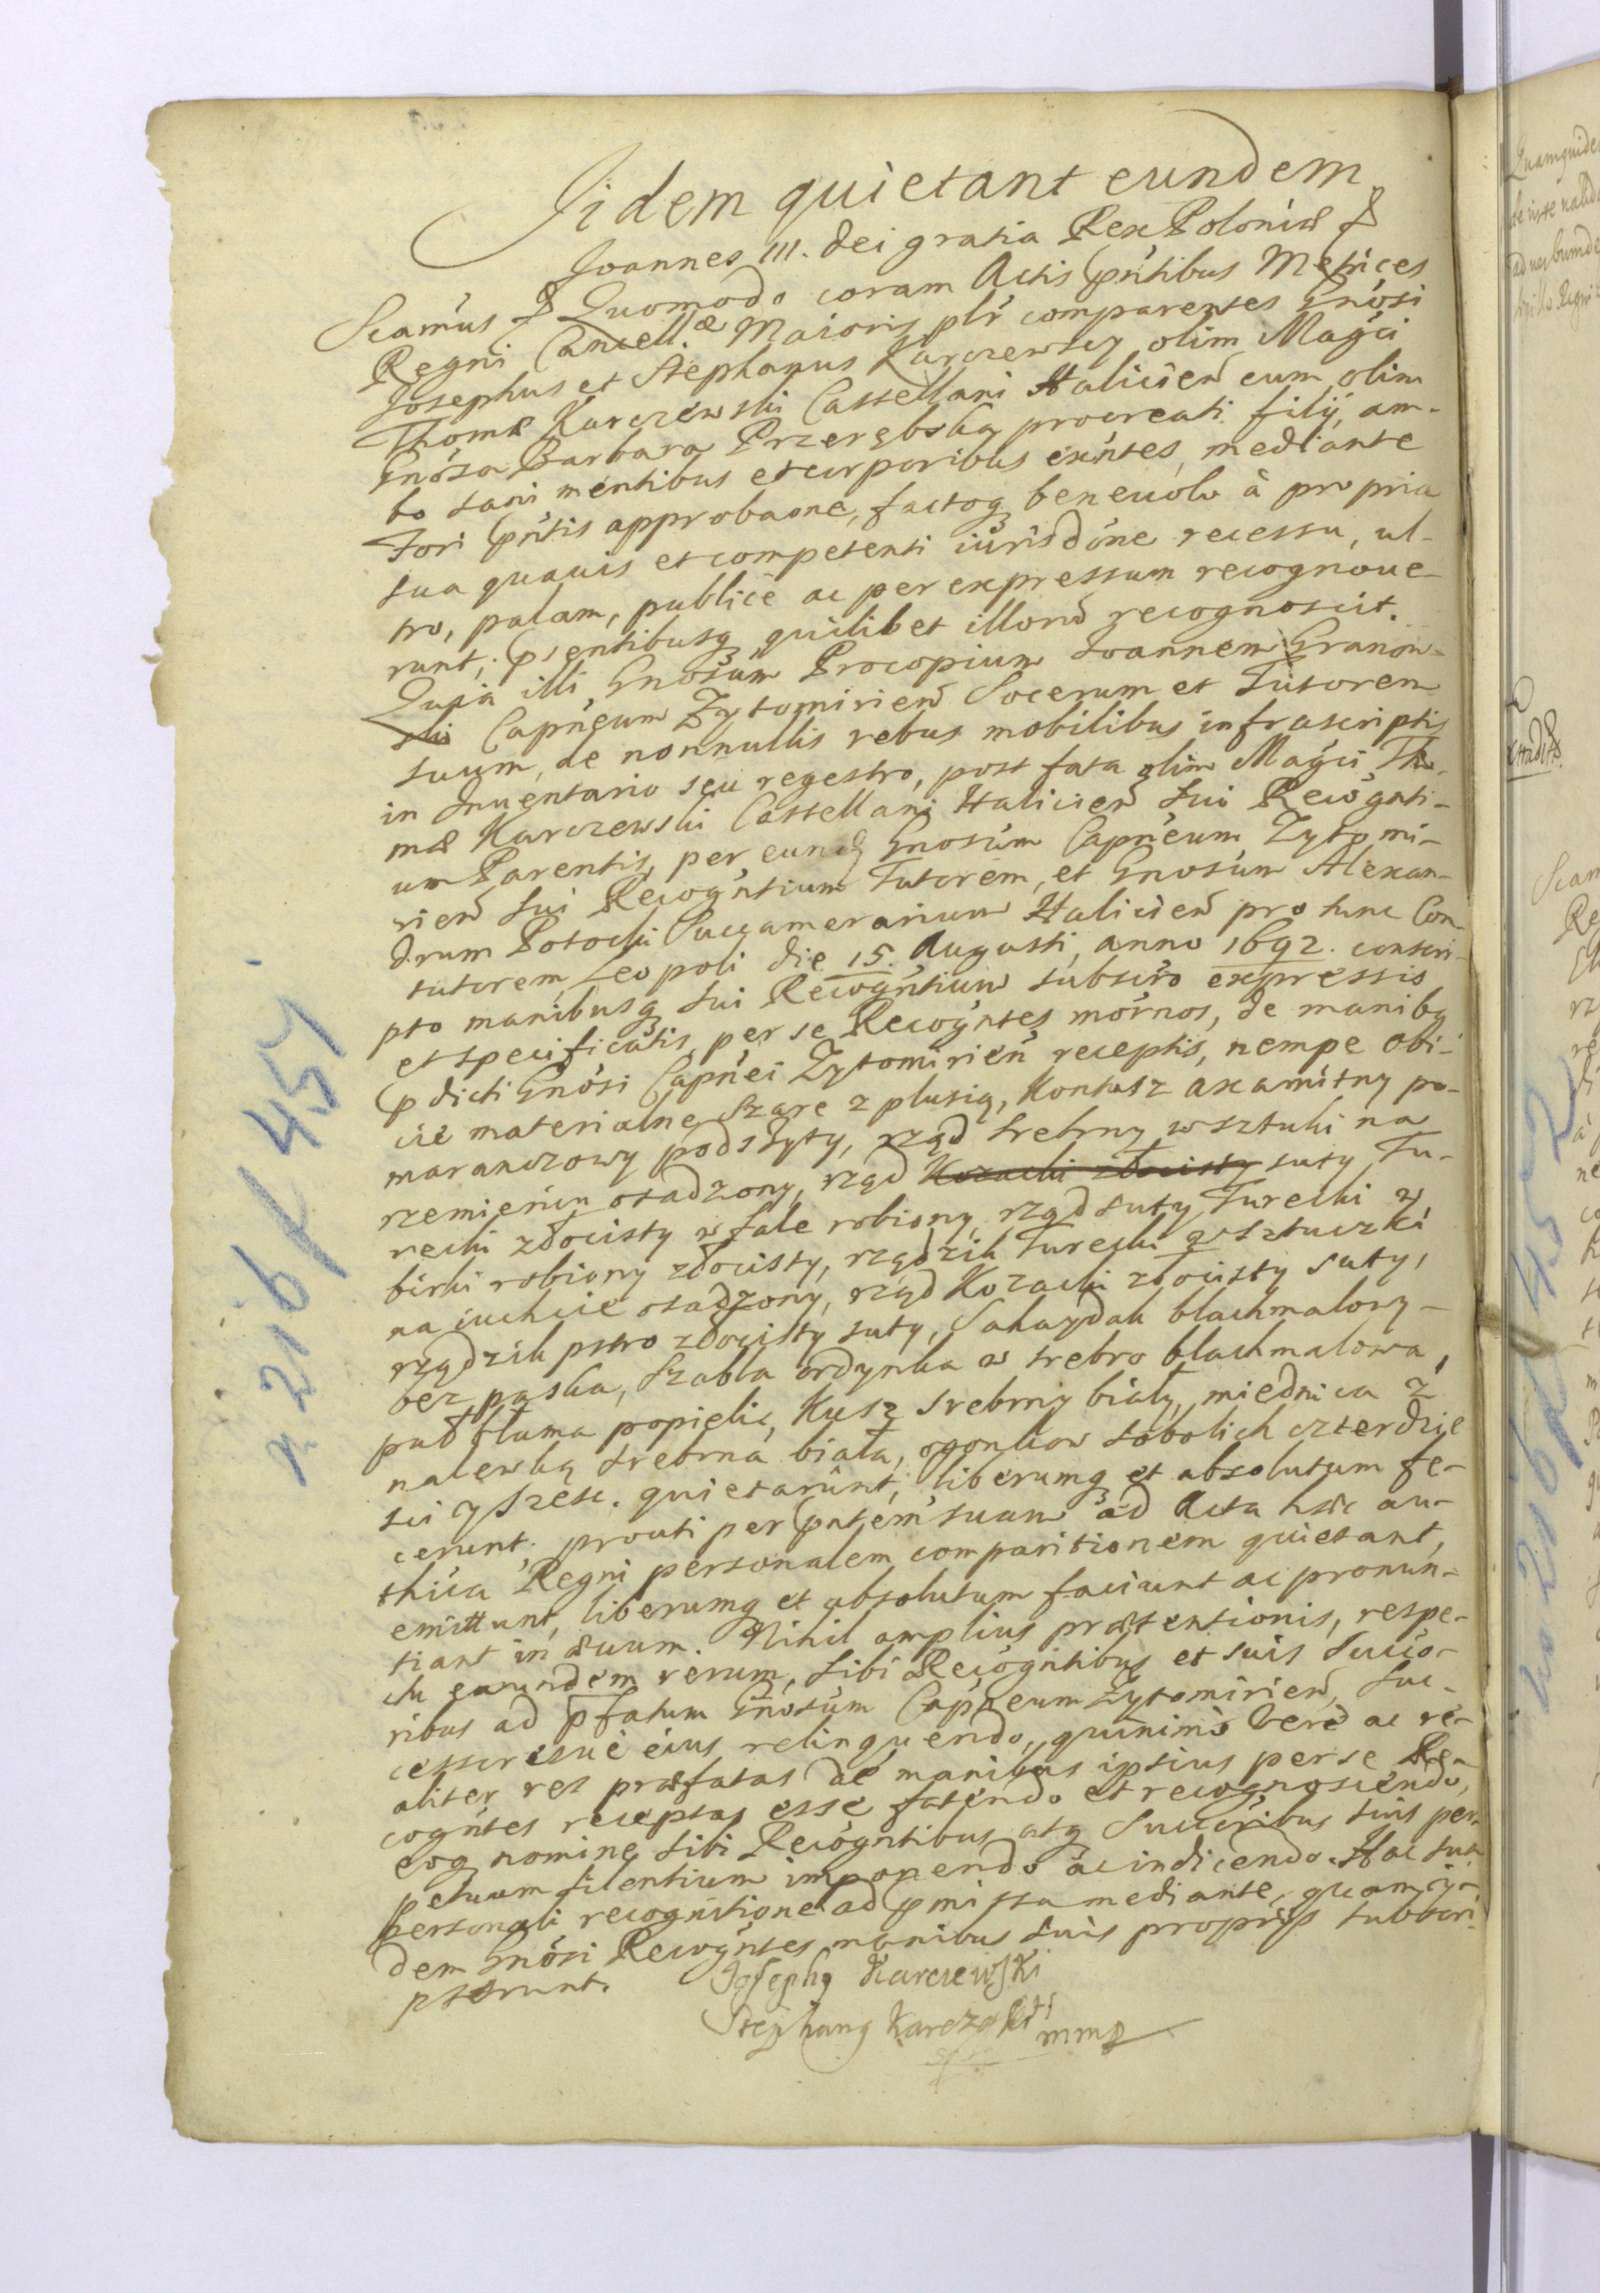 Iidem quietant eundem
Joannes III. Dei gratia Rex Poloniæ &
Scamus & Quomodo coram Actis Pńtibus Metrices
Regni Cancell.æ Maioris plr comparentes Gnósi
Josephus et Stephanus Karczewscy olim Magci
Thomæ Karczewski Castellani Halicień cum olim
Gnósa Barbara Przerębską procreati filij, am-
bo sani mentibus et corporibus exńtes, mediante
Fori Pńtis approbaone, factoq benevolo à propria
sua quavis et competenti iurisdóne recessu, ul-
tro, palam, publicè ac per expressum recognove-
runt; Psentibusq quilibet illorū recognoscit.
Quia illi Gnósum Procopium Joannem Granow-
ski Capńeum Zytomirień Socerum et Tutorem
suum, de nonnullis rebus mobilibus infrascriptis
in Inventario seu regestro, post fata olim Magci Tho-
mæ Karczewski Castellani Halicień sui Recogńti-
um Parentis, per eundē Gnosúm Capńeum Zytomi-
rień sui Recogńtium Tutorem, et Gnosúm Alexan-
drum Potocki Succamerarium Halicień pro tunc Con-
tutorem Leopoli die 15. Augusti, anno 1692. conscri-
pto manibusq sui Recogńtium subscro expressis
et specificatis, per se Recogńtes mórnos, de manibq
Pdicti Gnósi Capńei Zytomirień receptis, nempe obi-
cie materialne szare z plusią, Kontusz axamitny po-
maranczowy podszyty, rząd srebrny w sztuki na
rzemieniu osadzony, rząd Kozacki złocisty suty Tu-
recki złocisty w fale robiony, rząd suty Turecki w
birki robiony złocisty, rządzik Turecki w sztuczki
na iuchcie osadzony, rząd Kozacki złocisty suty,
rządzik pstro złocisty suty, Sahaydak blachmalowy
bez paska, Szabla ordynka w srebro blachmalowa,
puł błama popielic, Kusz srebrny biały, miednica z
nalewką srebrna biała, ogonkow sobolich czterdzie
sci y szesc. quietarunt, liberumq et absolutum fe-
cerunt; prouti per Pńtem suam ad Acta hæc au-
thica Regni personalem comparitionem quietant,
emittunt, liberumq et absolutum faciunt ac pronun-
tiant in ævum. Nihil amplius prætentionis, respe-
ctu earundem rerum, sibi Recogńtibus et suis Succo-
ribus ad Pfatum Gnósum Capńeum Zytomirień, Suc-
cessoresve eius relinquendo, quinimò verè ac re-
aliter res præfatas de manibus ipsius per se Re-
cogńtes receptas esse fatendo et recognoscendo,
eoq nomine sibi Recogńtibus atq Succóribus suis per-
petuum silentium imponendo ac indicendo. Hac sua
personali recognitione ad Pmissa mediante, quam ij-
dem Gnósi Recogńtes manibus suis proprijs subscri-
pserunt.
Josephq Karczewski
Stephanq Karczewski
mmp
n. 216 f 451